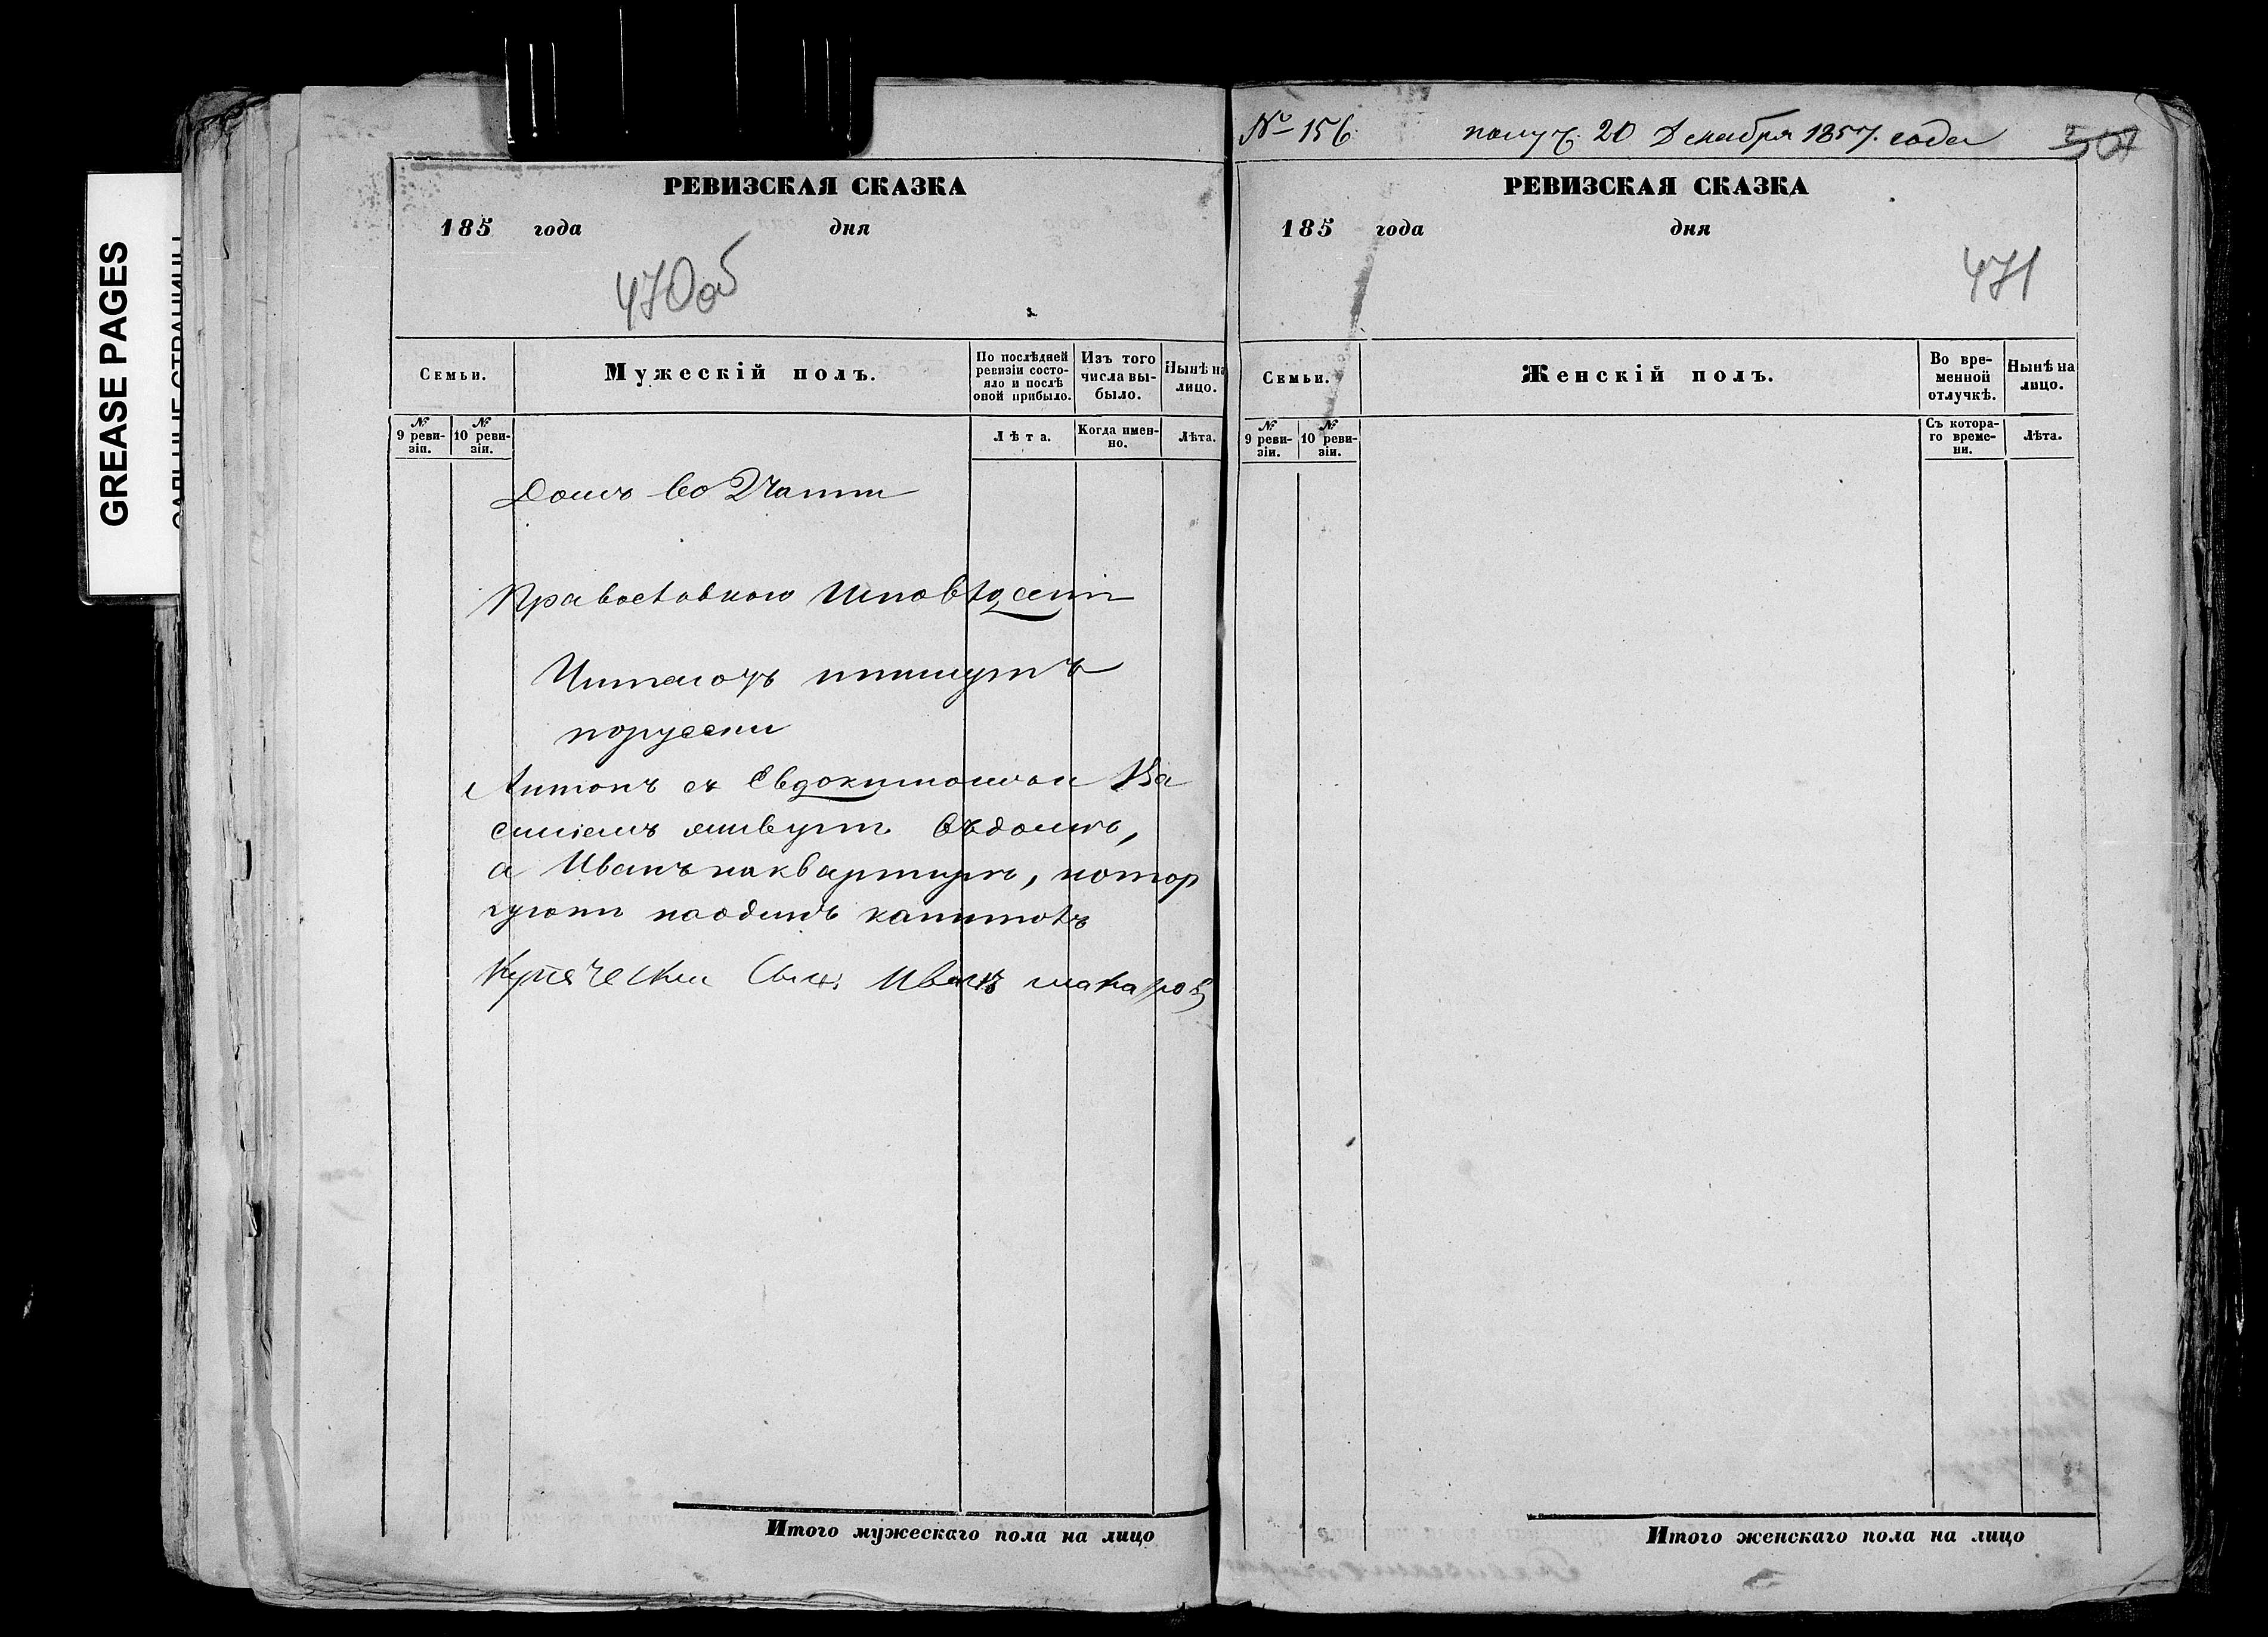 GREASE PAGES
РЕВИЗСКАЯ СКАЗКА
185 года дня
470об
Семьи.
Мужескій полъ.
По послѣдней ревизіи состояло и послѣ оной прибыло.
Изъ того числа выбыло.
Нынѣ на лицо.
№ 9 ревизіи.
№ 10 ревизіи.
Лѣта.
Когда именно.
Лѣта.
Домъ во 2 части
Православнаго Исповѣд
Читаютъ пишутъ
порусски
Антонъ съ Евдокимомъ и Ва
силіемъ живутъ въ домѣ,
а Иванъ на квартирѣ, но тор
гуютъ наодинъ капиталъ
Купеческій Сынъ Иванъ Макаровъ
Итого мужескаго пола на лицо
№ 156 получ. 20 Декабря 1857. года
РЕВИЗСКАЯ СКАЗКА
185 года дня
471
Семьи.
Женскій полъ.
Во временной отлучкѣ.
Нынѣ на лицо.
№ 9 ревизіи.
№ 10 ревизіи.
Съ котораго времени.
Лѣта.
Итого женскаго пола на лицо